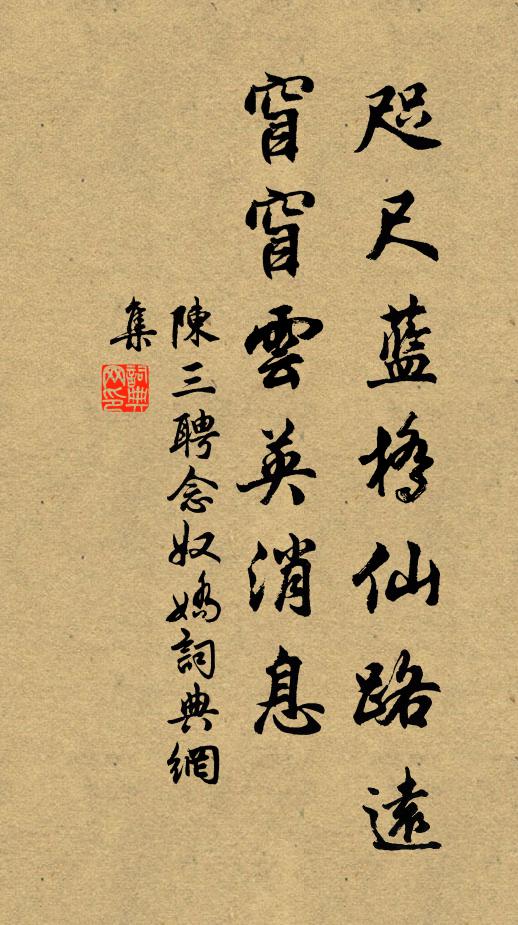 咫尺藍橋仙路遠
窅窅雲英消息
陳三聘念奴嬌詞典網
集
詞典
网印